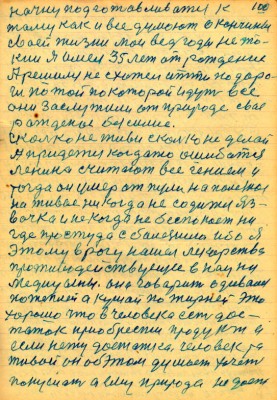 начну подготовливатся к 100
тому как и все думают о кончини
своей жизни мои ведь годы не та-
кии Я имел 35 лет от рождение
Я решил не схотел итти по доро-
ги по той по которой идут все
они Заслужили от природе свое
рождение бессилие.
сколко не живи сколко не делай
А придется когда то ошибатся
Ленина считают все гением и
тогда он умер от пули на полезное
на живае никогда не садижи яз-
вочка и некогда не беспокоет ни
где простуда с болезнию ибо Я
Этому врогу нашел лекарства
противодействующие в науки
Медицины. она говорит одевайся
потеплей а кушай по жирней Это
хорошо что в человека есть дос-
таток приобрести продукт а
если нету достатка, человек та
живой он об Этом думает хочет
покушат а ему природа не дает